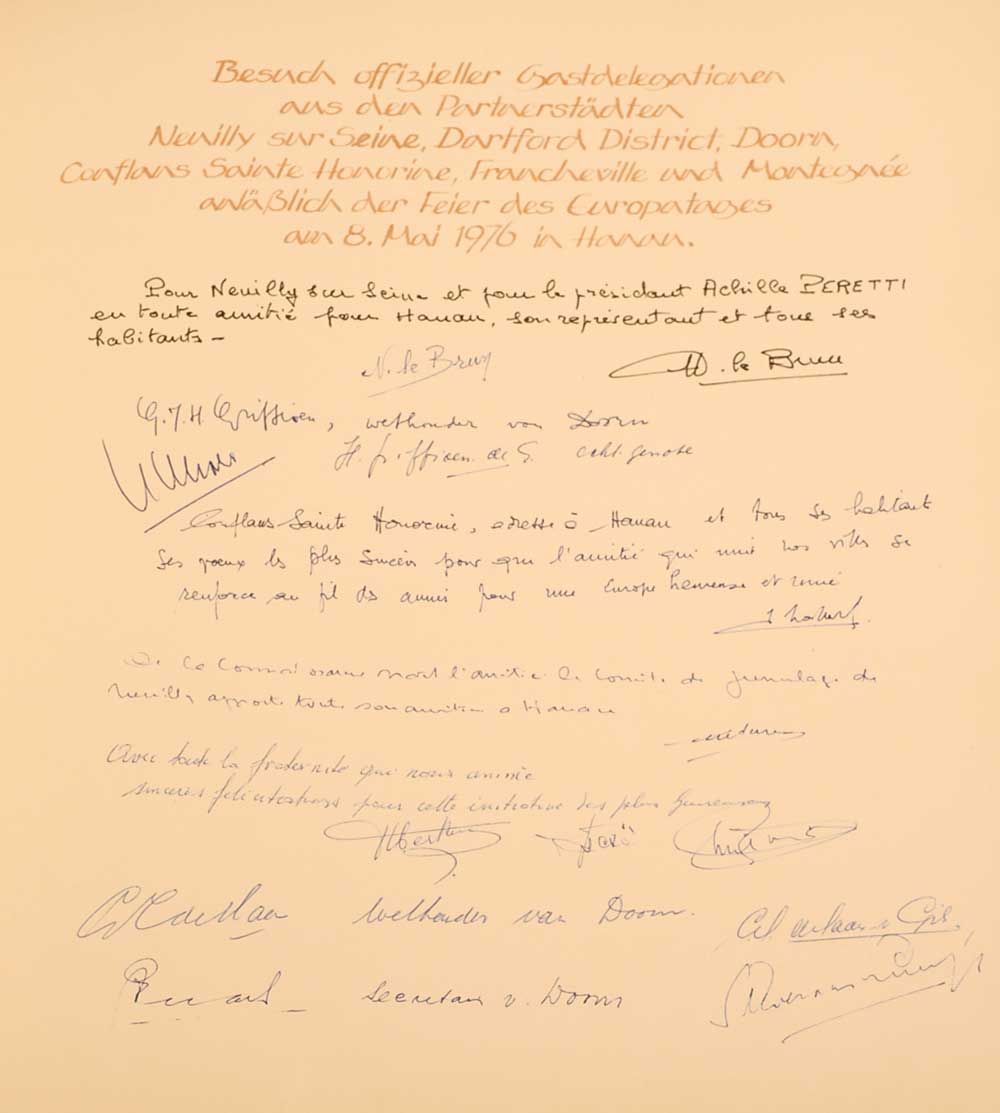 Besuch offizieller Gastdelegationen
aus den Partnerstädten
Neuilly sur Seine, Dartford District, Doorn,
Conflans Sainte Honorine, Francheville und Montegnée
anläßlich der Feier des Europatages
am 8. Mai 1976 in Hanau.
Pour Neuilly sur Seine et pour le président Achille PERETTI
en toute amitié pour Hanau, son représentant et tous ses
habitants –
N. le Brun
M. le Brun
G.J.H. Griffioen, wethouder van Doorn
H. Griffioen. de G. echtgenote
Conflans Sainte Honorine, adresse à Hanau et tous ses habitants
ses voeux les plus sincères pour que l'amitié qui unit nos villes se
renforce au fil des années pour une Europe heureuse et unie
De la connaissance nait l'amitié. Le Comité de jumelage de
Neuilly apporte toute son amitié à Hanau
Avec toute la fraternité qui nous anime
sincères félicitations pour cette initiative des plus heureuses
Wethouder van Doorn.
Secretaris v. Doorn